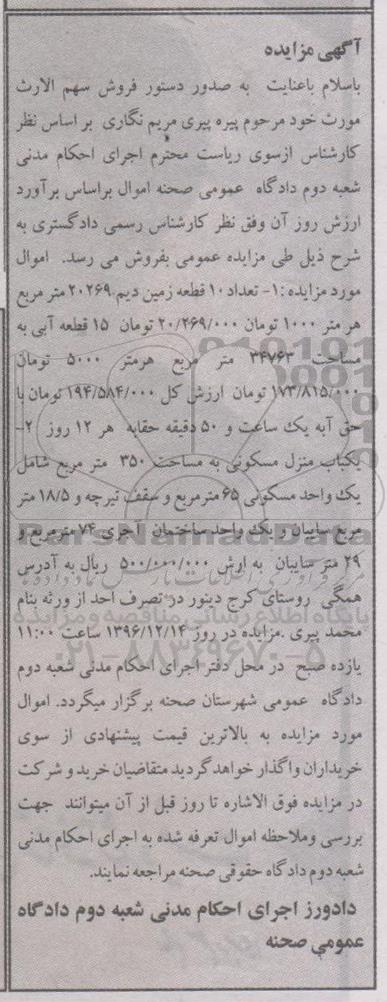 آگهی مزایده
باسلام باعنایت به صدور دستور فروش سهم الارث
مورث خود مرحوم پیره پیری مریم نگاری بر اساس نظر
کارشناس ازسوی ریاست محترم اجرای احکام مدنی
شعبه دوم دادگاه عمومی صحنه اموال براساس برآورد
ارزش روز آن وفق نظر کارشناس رسمی دادگستری به
شرح ذیل طی مزایده عمومی بفروش می رسد. اموال
مورد مزایده :۱- تعداد ۱۰ قطعه زمین دیم ۲۰۲۶۹ متر مربع
هر متر ۱۰۰۰ تومان ۲۰/۲۶۹/۰۰۰ تومان ۱۵ قطعه آبی به
مساحت ۳۴۷۶۳ متر مربع هرمتر ۵۰۰۰ تومان
۱۷۳/۸۱۵/۰۰۰ تومان ارزش کل ۱۹۴/۵۸۴/۰۰۰ تومان با
حق آبه یک ساعت و ۵۰ دقیقه حقابه هر ۱۲ روز ۲-
یکباب منزل مسکونی به مساحت ۳۵۰ متر مربع شامل
یک واحد مسکونی ۶۵ مترمربع و سقف تیرچه و ۱۸/۵ متر
مربع سایبان و یک واحد ساختمان آجری ۷۴ مترمربع و
۲۹ متر سایبان به ارش ۵۰۰/۰۰۰/۰۰۰ ریال به آدرس
همگی روستای کرج دینور در تصرف احد از ورثه بنام
محمد پیری .مزایده در روز ۱۳۹۶/۱۲/۱۴ ساعت ۱۱:۰۰
یازده صبح در محل دفتر اجرای احکام مدنی شعبه دوم
دادگاه عمومی شهرستان صحنه برگزار میگردد. اموال
مورد مزایده به بالاترین قیمت پیشنهادی از سوی
خریداران واگذار خواهد گردید متقاضیان خرید و شرکت
در مزایده فوق الاشاره تا روز قبل از آن میتوانند جهت
بررسی وملاحظه اموال تعرفه شده به اجرای احکام مدنی
شعبه دوم دادگاه حقوقی صحنه مراجعه نمایند.
دادورز اجرای احکام مدنی شعبه دوم دادگاه
عمومی صحنه
ParsNamadData
پایگاه اطلاع رسانی مناقصه و مزایده
۰۲۱-۸۸۳۴۹۶۷۰-۵